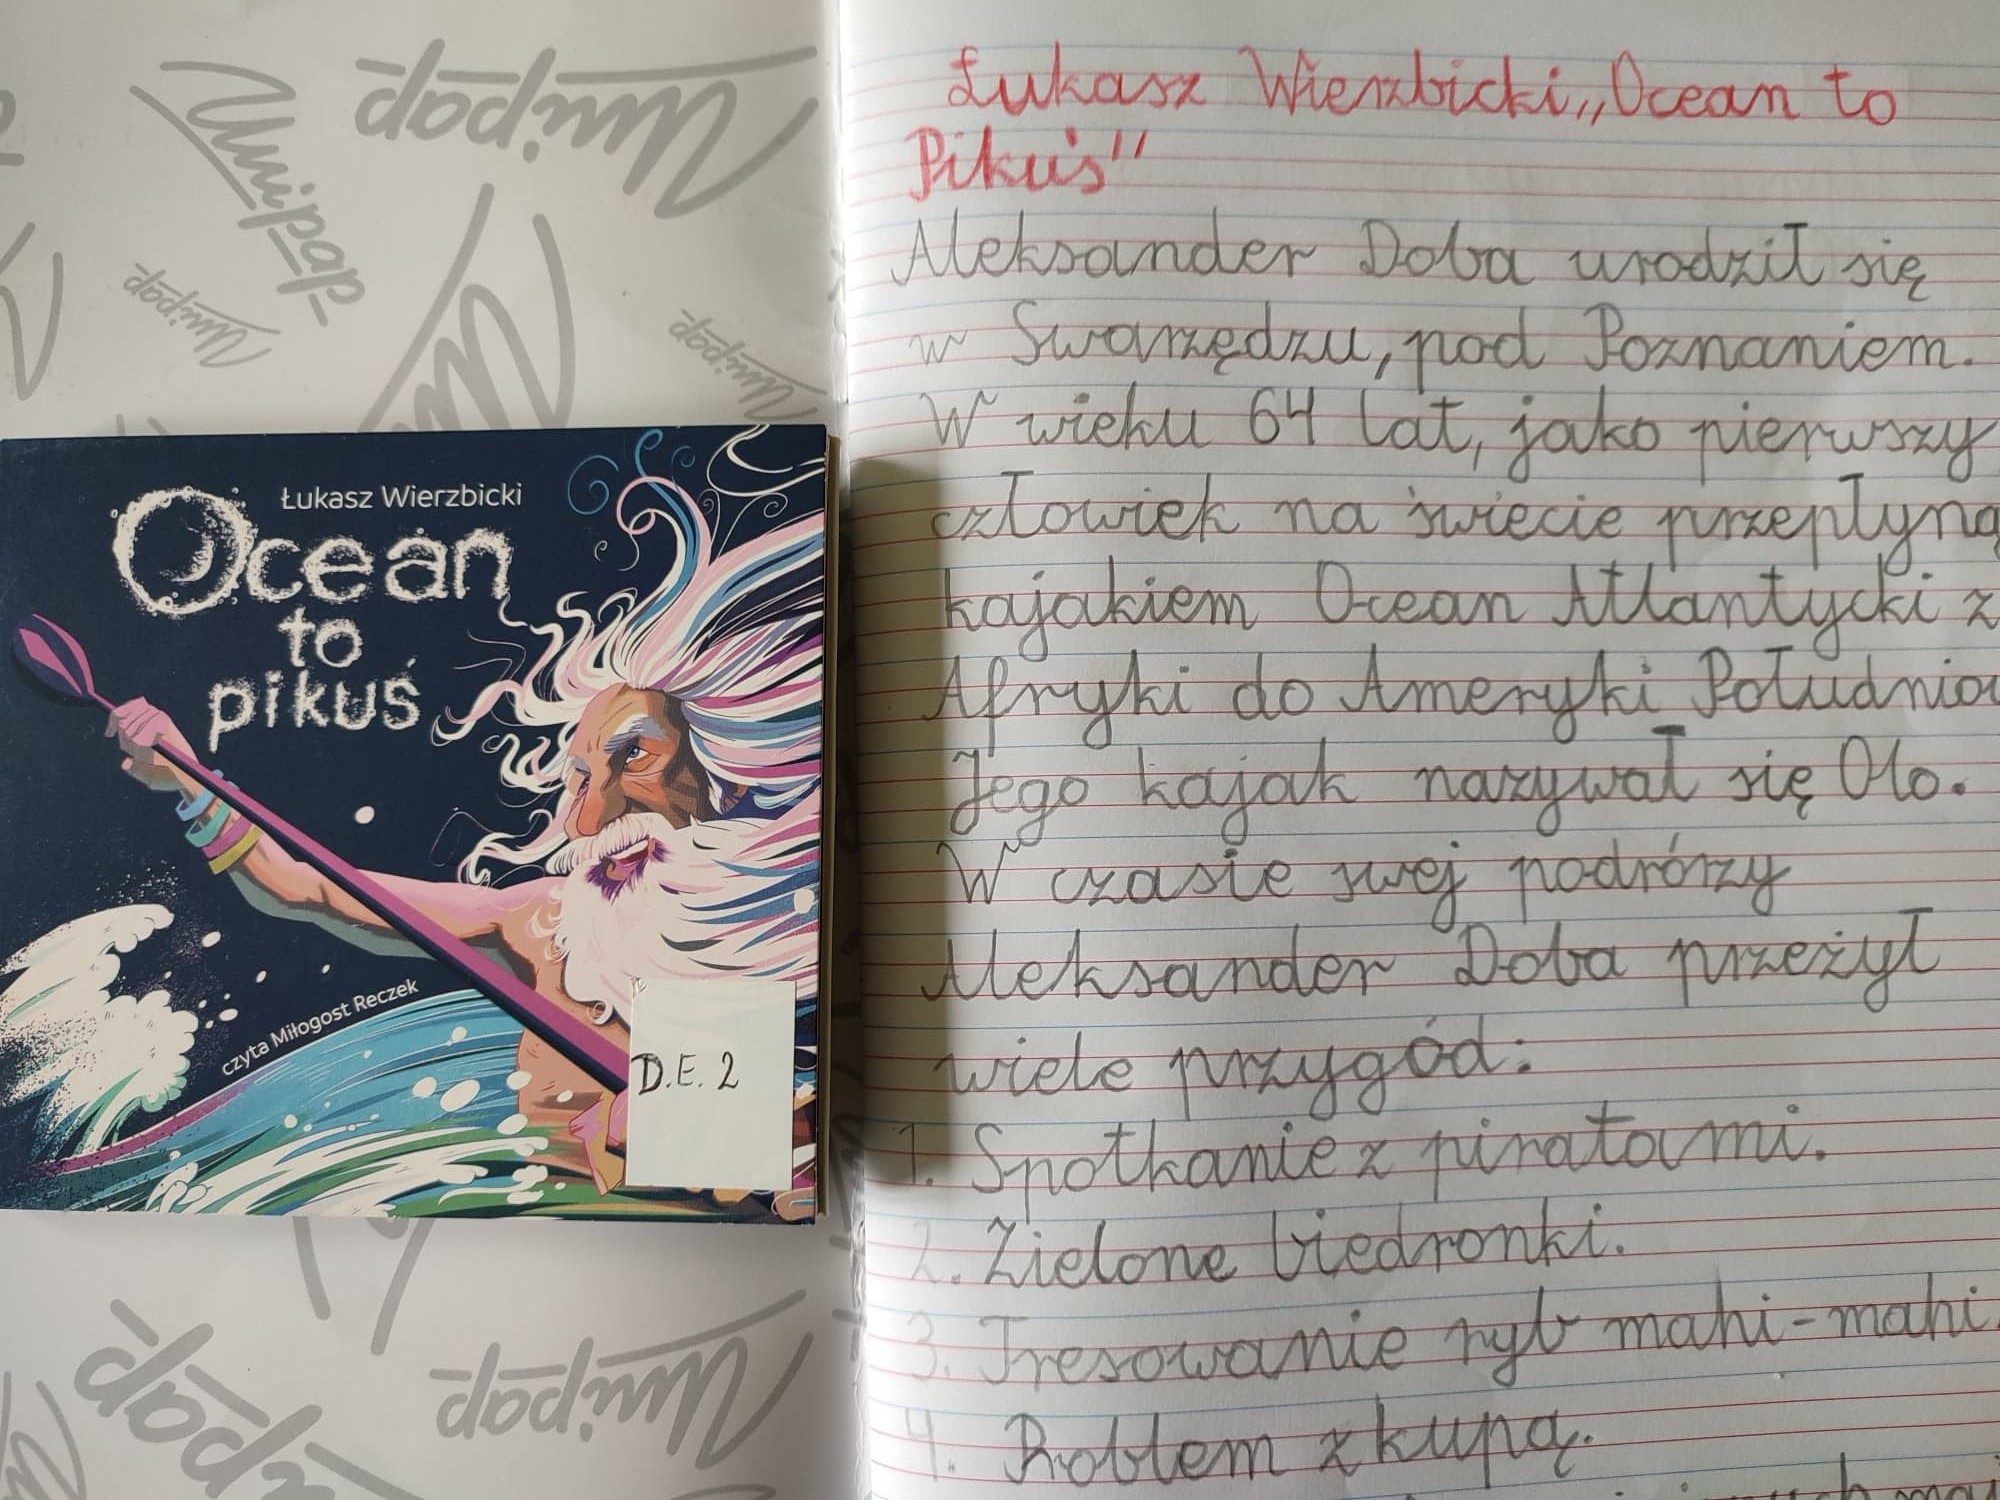 Unipap
Unipap
Unipap
Unipap
Łukasz Wierzbicki
Ocean
to
pikuś
czyta Miłogost Reczek
D.E. 2
Unipap
Unipap
Łukasz Wierzbicki „Ocean to
Pikuś"
Aleksander Doba urodził się
w Swarzędzu, pod Poznaniem.
W wieku 64 lat, jako pierwszy
człowiek na świecie przepłyną
kajakiem Ocean Atlantycki z
Afryki do Ameryki Południow
Jego kajak nazywał się Olo.
W czasie swej podróży
Aleksander Doba przeżył
wiele przygód:
1. Spotkanie z piratami.
2. Zielone biedronki.
3. Tresowanie ryb mahi-mahi.
4. Problem z kupą.